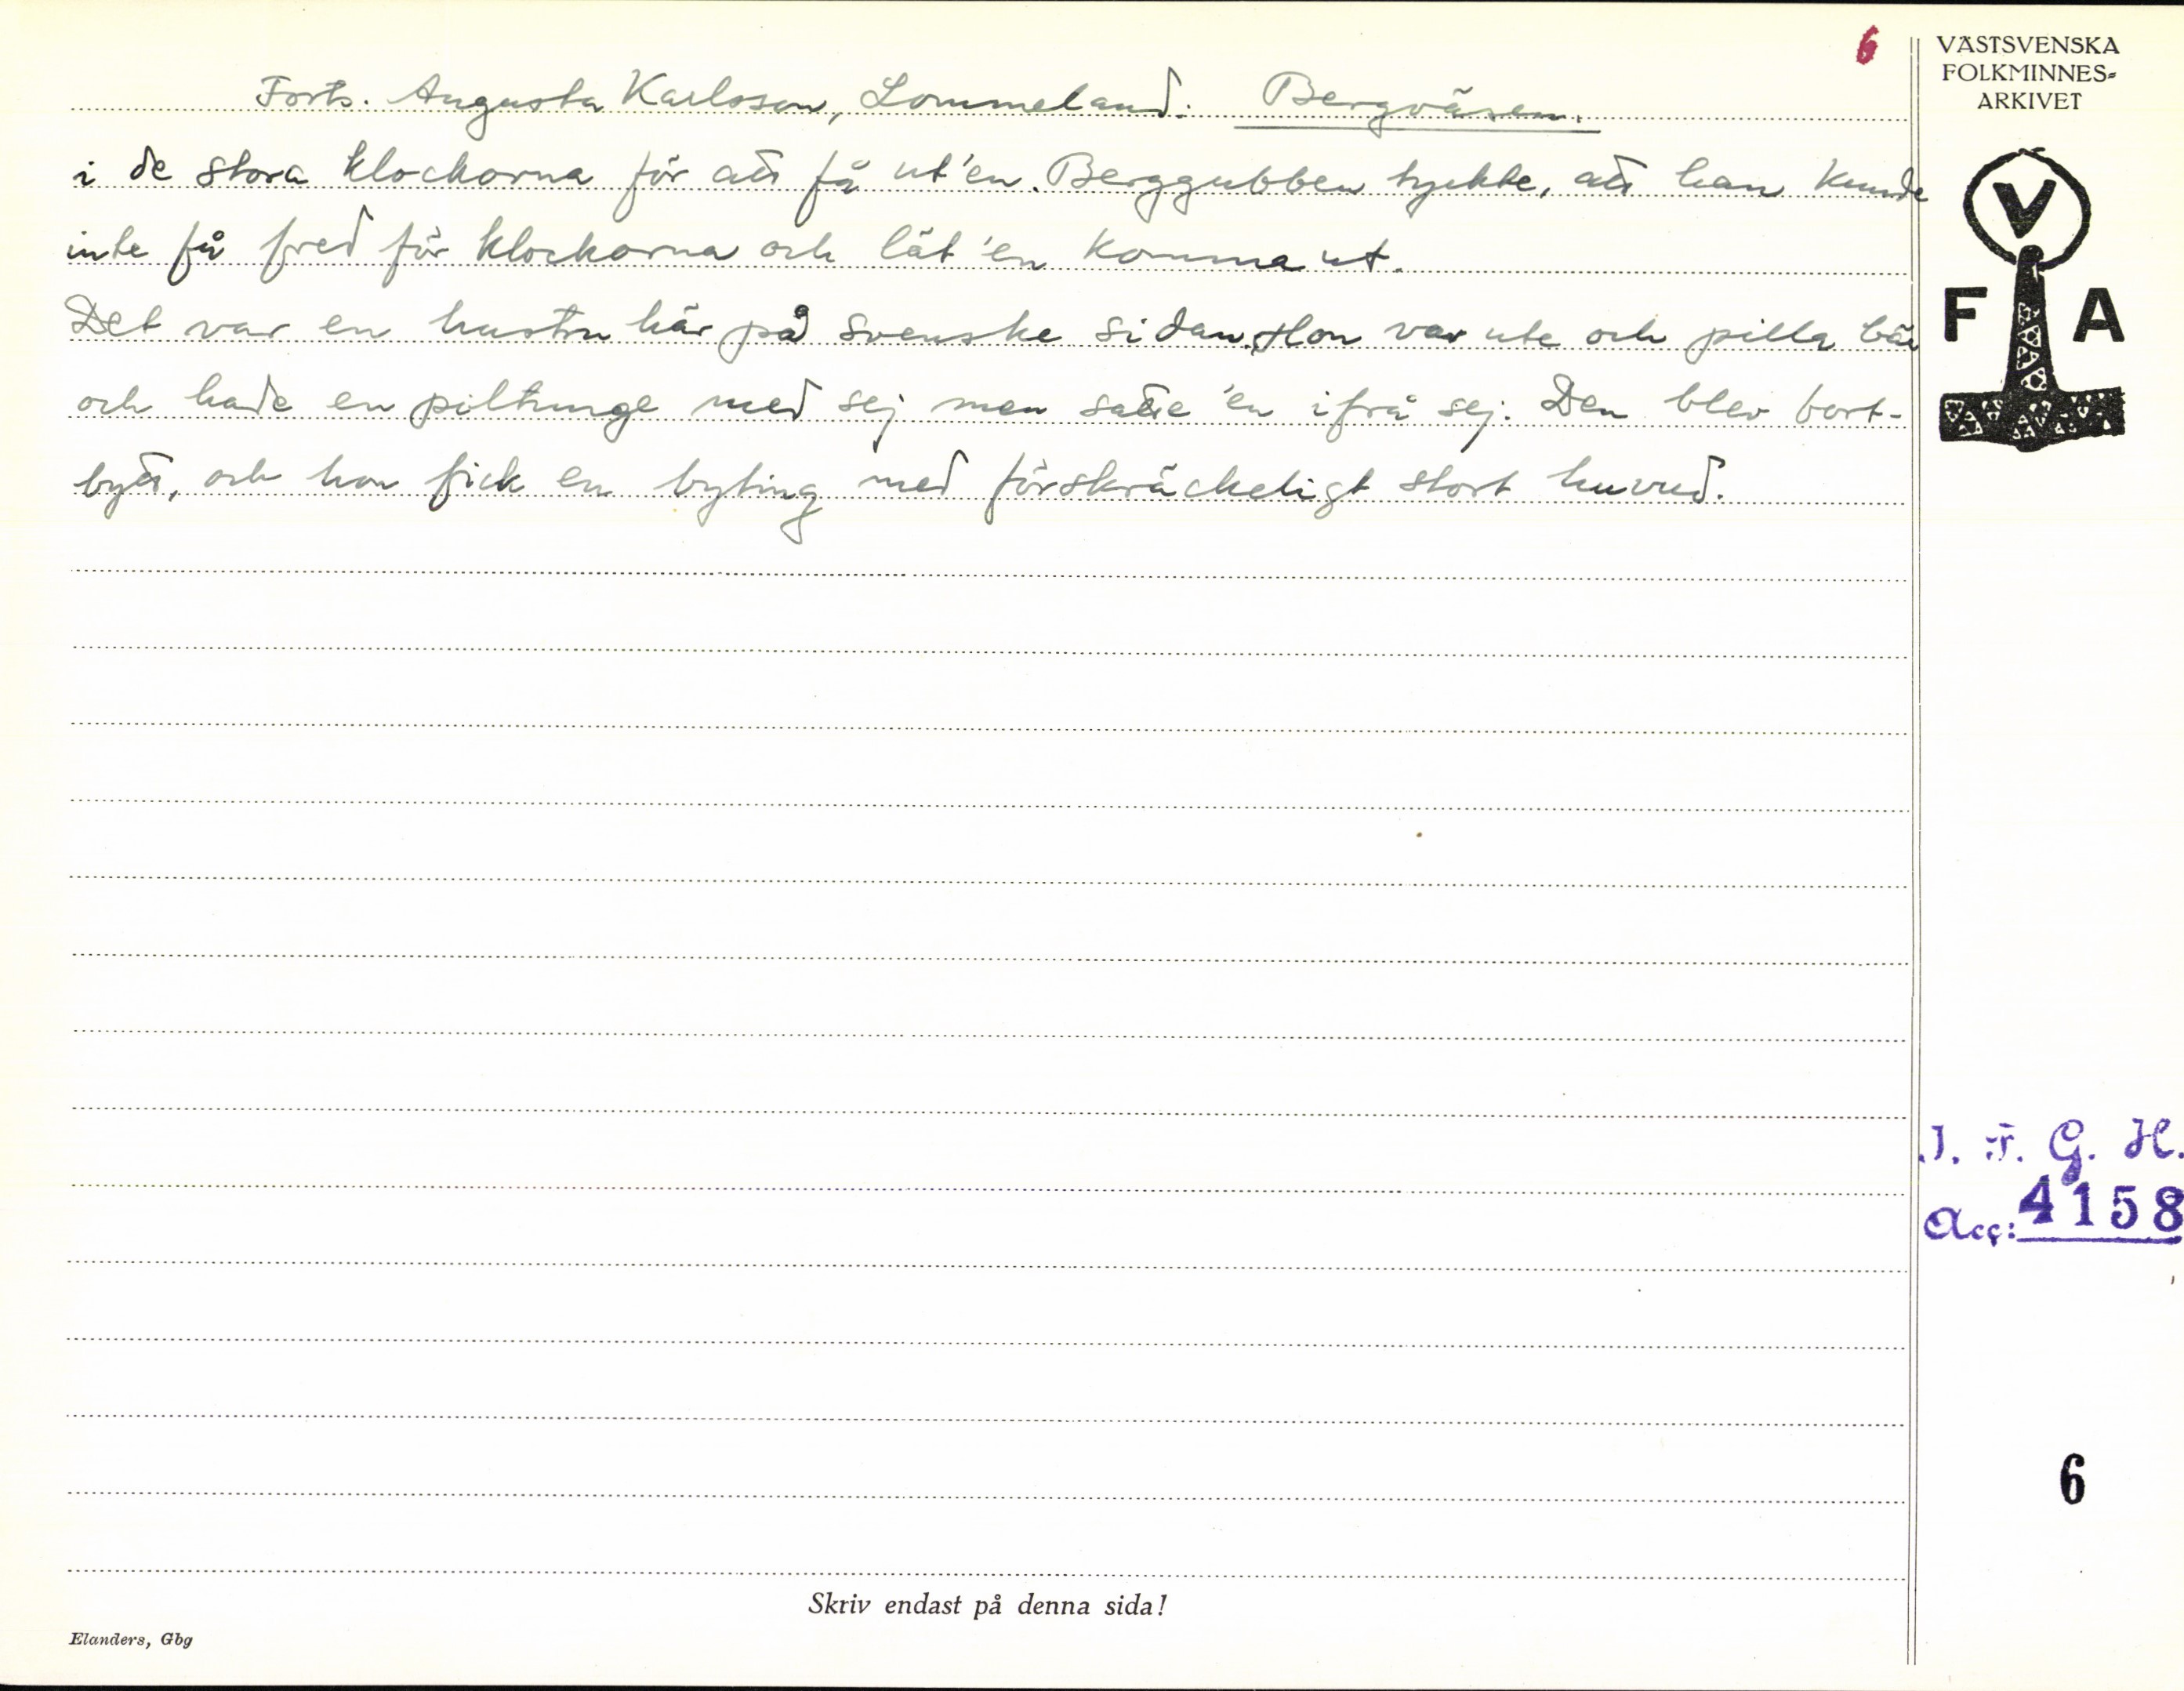 6
VÄSTSVENSKA
FOLKMINNES-
ARKIVET
Forts. Augusta Karlsson, Lommeland. Bergväsen.
i de stora klockorna för att få ut'en. Berggubben tyckte, att han kunde
inte få fred för klockorna och lät 'en komma ut.
Det var en hustru här på svenske sidan. Hon var ute och pilla bär
och hade en piltunge med sej men satte 'en ifrå sej. Den blev bort-
bytt, och hon fick en byting med förskräckeligt stort huvud.
V
F A
I. F. G. H.
Acc: 4158
6
Skriv endast på denna sida!
Elanders, Gbg